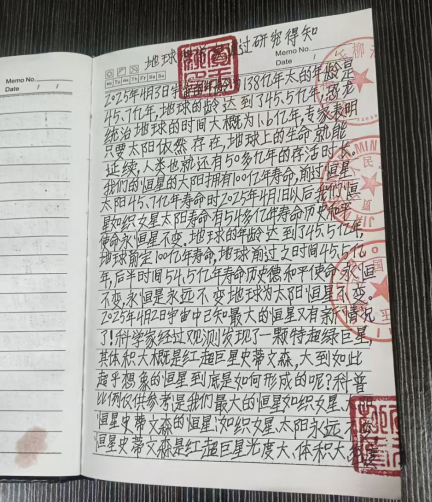 Memo No.
Date / /
Memo No.
Mo Tu We Th Fr Sa Su
Date / /
地球 过研究得知
2025年4月3日宇 为138亿年太阳的年龄是
45.7亿年,地球的年龄达到了45.5亿年,恐龙
统治地球的时间大概为1.6亿年,专家表明
只要太阳依然存在,地球上的生命就能
延续,人类也就还有50多亿年的存活时长。
我们的恒星的太阳拥有100亿年寿命,前过恒星
太阳45.7亿年寿命时2025年4月1日以后我们恒
星如织女星太阳寿命有54多亿年寿命历史和平
使命永恒星不变,地球的年龄达到了45.5亿年,
地球前定100亿年寿命,地球前过之时间45.5亿
年,后半时间54.5亿年寿命历史德和平使命永恒
不变,永恒是永远不变地球为太阳恒星不变。
2025年4月2日宇宙中已知最大的恒星又有新情况
了!科学家经过观测发现了一颗特超绿巨星,
其体积大概是红超巨星史蒂文森,大到如此
超乎想象的恒星到底是如何形成的呢?科普
比例仅供参考是我们最大的恒星如织女星、
恒星史蒂文森的恒星如织女星、太阳永远
恒星史蒂文森是红超巨星光度大、体积大